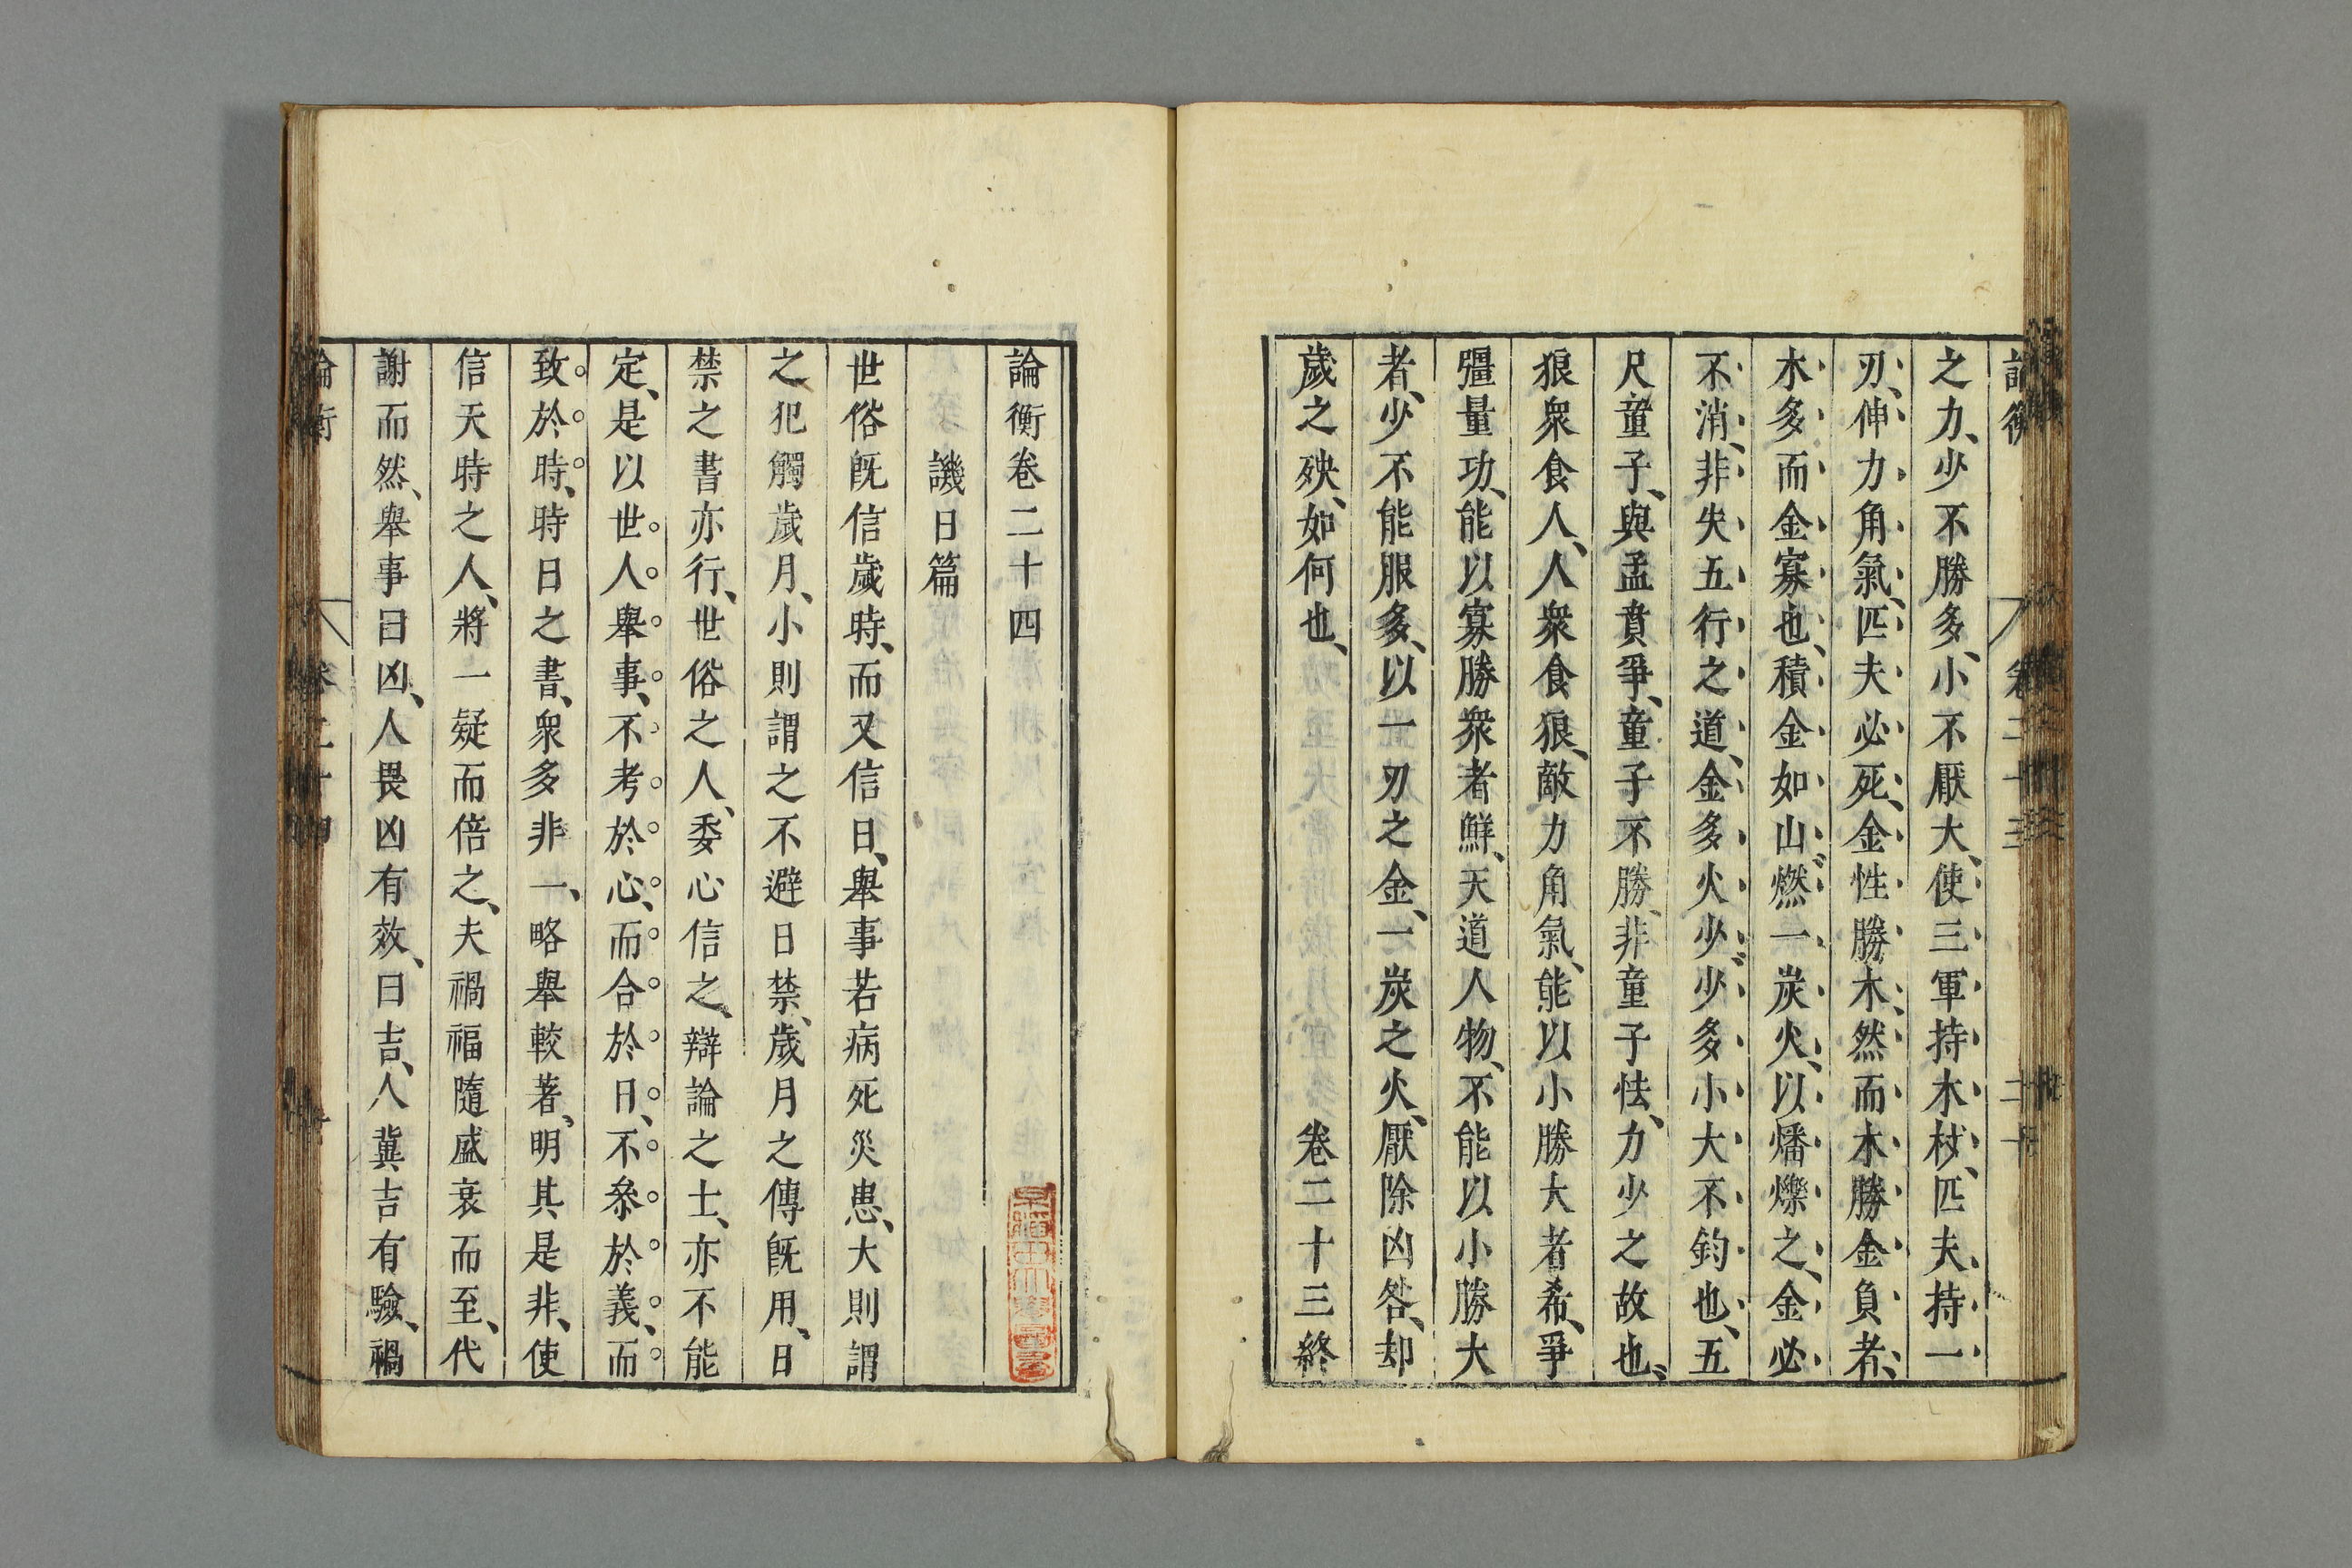 之力、少不勝多、小不厭大、使三軍持木杖、匹夫持一
刃、伸力角氣、匹夫必死、金性勝木、然而木勝金負者、
木多而金寡也、積金如山、燃一炭火、以燔爍之、金必
不消、非失五行之道、金多火少、少多小大不鈞也、五
尺童子、與孟賁爭、童子不勝、非童子怯、力少之故也、
狼衆食人、人衆食狼、敵力角氣、能以小勝大者希、爭
彊量功、能以寡勝衆者鮮、天道人物、不能以小勝大
者、少不能服多、以一刃之金、一炭之火、厭除凶咎、却
歲之殃、如何也、
卷二十三終
論衡卷二十四
譏日篇
世俗旣信歲時、而又信日、舉事若病死災患、大則謂
之犯觸歲月、小則謂之不避日禁、歲月之傳旣用、日
禁之書亦行、世俗之人、委心信之、辯論之士、亦不能
定、是以世人舉事、不考於心、而合於日、不參於義、而
致於時、時日之書、衆多非一、略舉較著、明其是非、使
信天時之人、將一疑而倍之、夫禍福隨盛衰而至、代
謝而然、舉事曰凶、人畏凶有效、曰吉、人冀吉有驗、禍